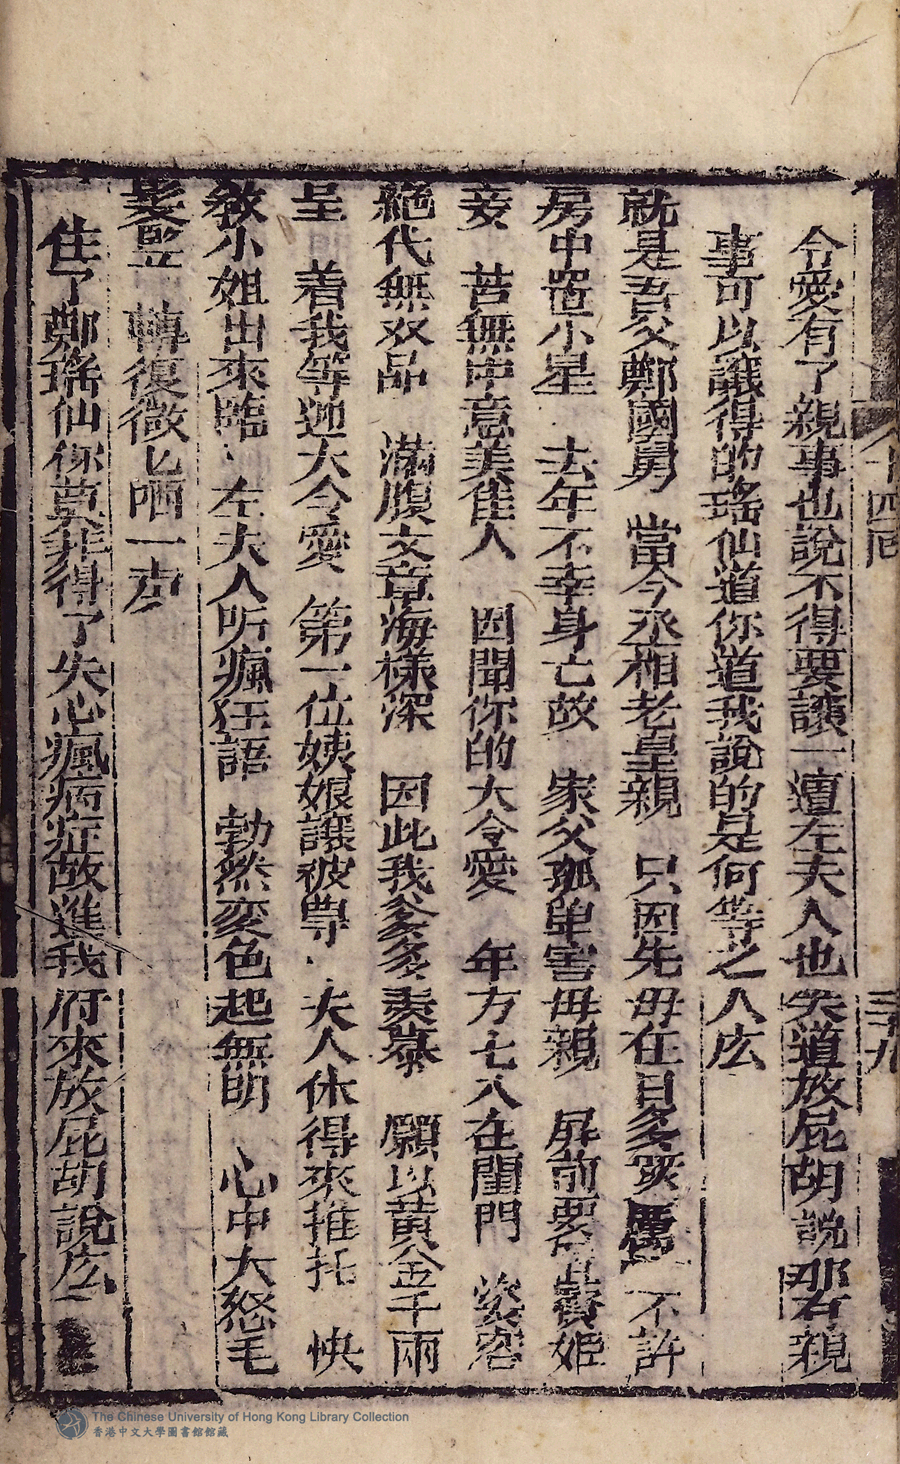 十四回
三十九
令愛有了親事也說不得要讓一遭左夫人也笑道放屁胡說那有親
事可以讓得的瑤仙道你道我說的是何等之人広
就是吾父鄭國舅　當今丞相老皇親　只因先母在日多　不許
房中置小星　去年不幸身亡故　家父孤单害母親　屏前要　寳姬
妾　苦無中意美佳人　因聞你的大令愛　年方七八在閨門　姿容
絕代無双品　滿腹文章海樣深　因此我爹多羨慕　願以黃金千兩
呈　着我等迎大令愛　第一位姨娘讓彼尊　夫人休得來推托　快
教小姐出來臨　左夫人听瘋狂語　勃然变色起無明　心中大怒毛
髮竪　轉復微匕哂一声
住了鄭瑤仙你莫非得了失心瘋病症故進我府來放屁胡說広
The Chinese University of Hong Kong Library Collection
香港中文大學圖書館館藏